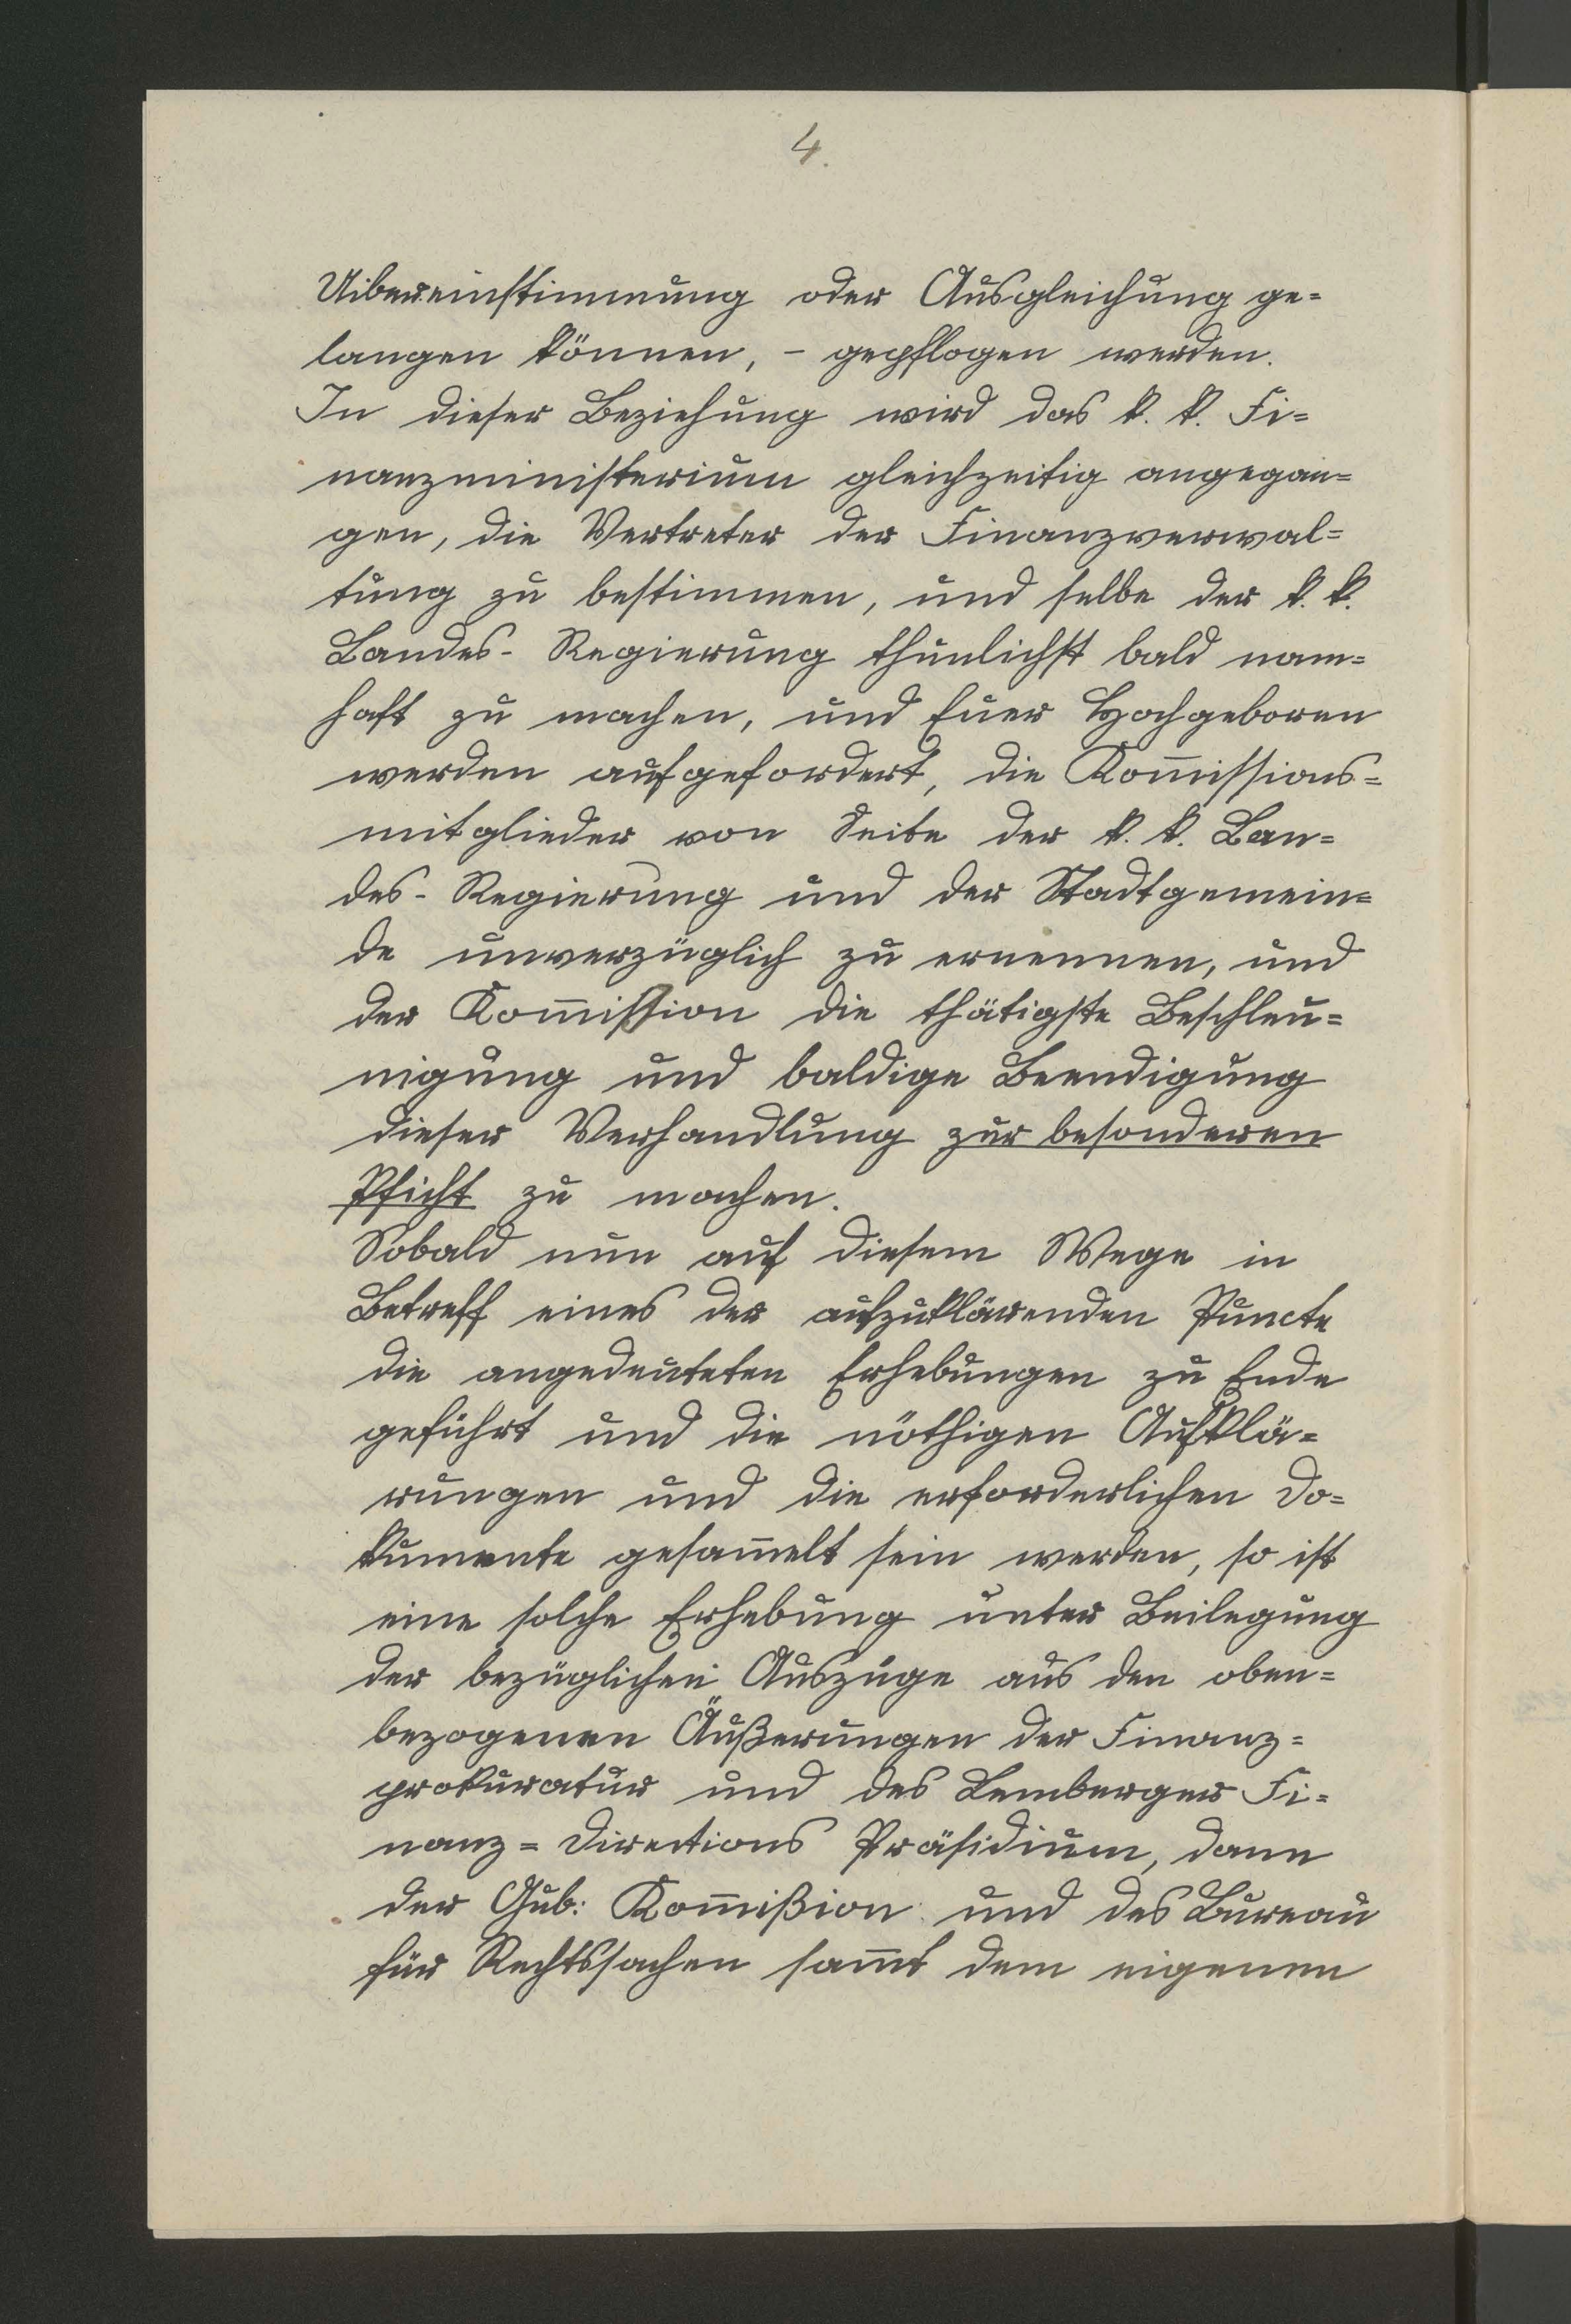 4.
Uibereinstimmung oder Ausgleichung ge=
langen können, – gepflogen werden.
In dieser Beziehung wird das k. k. Fi=
nanzministerium gleichzeitig angegan=
gen, die Vertreter der Finanzverwal=
tung zu bestimmen, und selbe der k. k.
Landes- Regierung thunlichst bald nam=
haft zu machen, und Euer Hochgeboren
werden aufgefordert, die Kom̄issions=
mitglieder von Seite der k. k. Lan=
des- Regierung und der Stadtgemein=
de unverzüglich zu ernennen, und
der Kom̄ission die thätigste Beschleu=
nigung und baldige Beendigung
dieser Verhandlung zur besonderen
Pficht zu machen.
Sobald nun auf diesem Wege in
Betreff eines der aufzuklärenden Puncte
die angedeuteten Erhebungen zu Ende
geführt und die nöthigen Aufklä=
rungen und die erforderlichen Do=
kumente gesam̄elt sein werden, so ist
eine solche Erhebung unter Beilegung
der bezüglichen Auszüge aus den oben=
bezogenen Äußerungen der Finanz=
prokuratur und des Lemberger Fi=
nanz= Directions Präsidium, dann
der Gub: Kom̄ißion und des Bureau
für Rechtssachen sam̄t dem eigenen